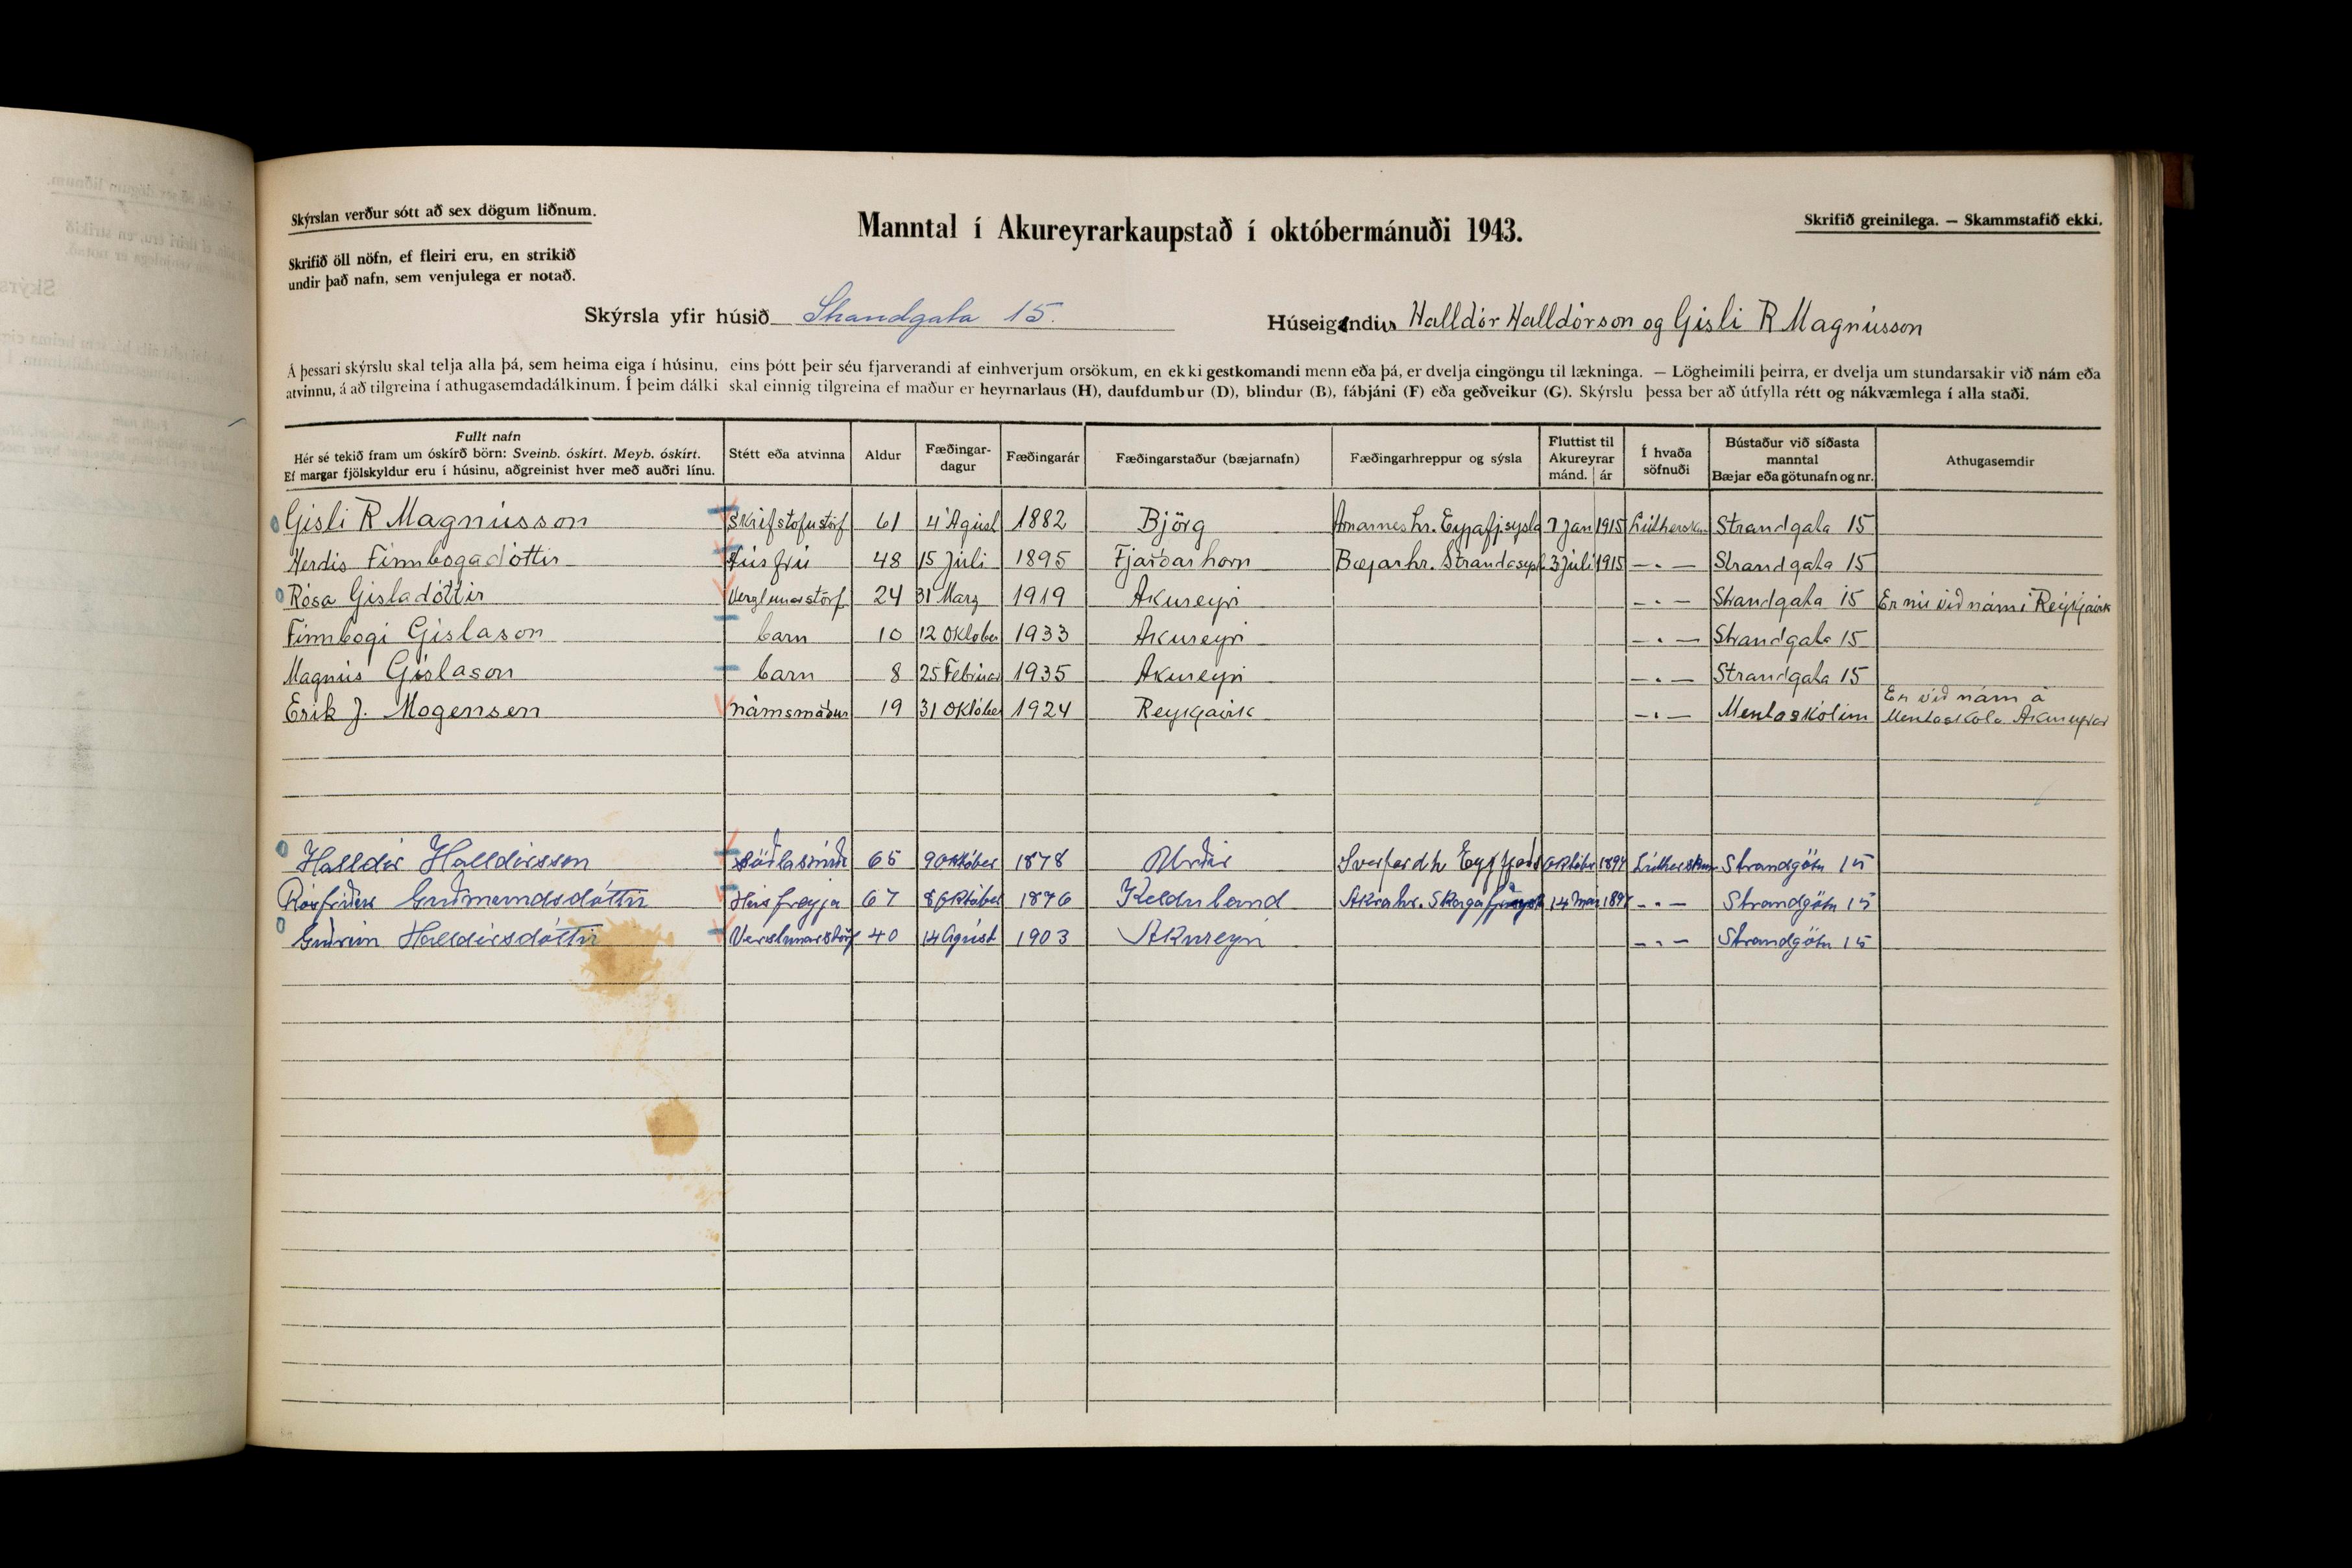 Skýrslan verður sótt að sex dögum liðnum.
Manntal í Akureyrarkaupstað í októbermánuði 1943.
Skrifið greinilega. — Skammstafið ekki.
Skrifið öll nöfn, ef fleiri eru, en strikið
undir það nafn, sem venjulega er notað.
Skýrsla yfir húsið Strandgata 15.
Húseigendur Halldór Halldórson og Gisli R Magnússon
Á þessari skýrslu skal telja alla þá, sem heima eiga í húsinu, eins þótt þeir séu fjarverandi af einhverjum orsökum, en ekki gestkomandi menn eða þá, er dvelja eingöngu til lækninga. — Lögheimili þeirra, er dvelja um stundarsakir við nám eða
atvinnu, á að tilgreina í athugasemdadálkinum. Í þeim dálki skal einnig tilgreina ef maður er heyrnarlaus (H), daufdumbur (D), blindur (B), fábjáni (F) eða geðveikur (G). Skýrslu þessa ber að útfylla rétt og nákvæmlega í alla staði.
Fullt nafn
Hér sé tekið fram um óskírð börn: Sveinb. óskírt. Meyb. óskírt.
Ef margar fjölskyldur eru í húsinu, aðgreinist hver með auðri línu.
Stétt eða atvinna
Aldur
Fæðingar-
dagur
Fæðingarár
Fæðingarstaður (bæjarnafn)
Fæðingarhreppur og sýsla
Fluttist til
Akureyrar
mánd. ár
Í hvaða
söfnuði
Bústaður við síðasta
manntal
Bæjar eða götunafn og nr.
Athugasemdir
Gisli R Magnússon Skrifstofustörf 61 4 Ágúst 1882 Björg Arnarneshr. Eyjafj.sysla 7 Jan 1915 Strandgata 15
Herdis Finnbogadóttir Húsfrú 48 15 Júli 1895 Fjarðarhorn Bæjarhr. Strandasysl 3 Júli 1915 — . — Strandgata 15
Rósa Gisladóttir 24 31 Marz 1919 Akureyri — . — Strandgata 15 Er nú við nám í Reykjavik
Finnbogi Gislason barn 10 12 Oktober 1933 Akureyri — . — Strandgata 15
Magnús Gíslason barn 8 25 Febrúar 1935 Akureyri — . — Strandgata 15
Erik J. Mogensen námsmaður 19 31 Október 1924 Reykjavik — . — Mentaskólinn Er við nám á
Mentaskola Akureyrar
Halldór Halldórsson Söðlasmiður 65 9 Október 1878 Urðir Október 1897 Strandgötu 15
Guðmundsdóttir Húsfreyja 67 8 Október 1876 Kelduland Akrahr. 14 Mai — . — Strandgötu 15
Guðrún Halldórsdóttir Verslunarstörf 40 14 Agúst 1903 Akureyri — . — Strandgötu 15